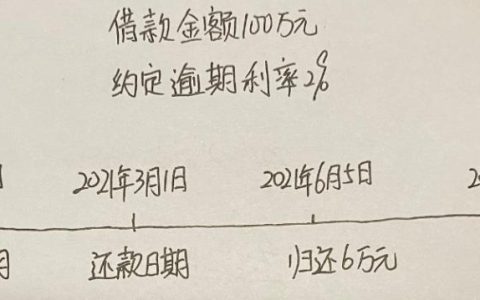 借款金额100万元
约定逾期利率2%
2021年3月1日 2021年6月5日 20
还款日期 归还6万元